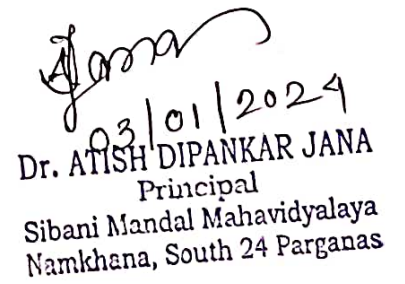 AJana
03/01/2024
Dr. ATISH DIPANKAR JANA
Principal
Sibani Mandal Mahavidyalaya
Namkhana, South 24 Parganas